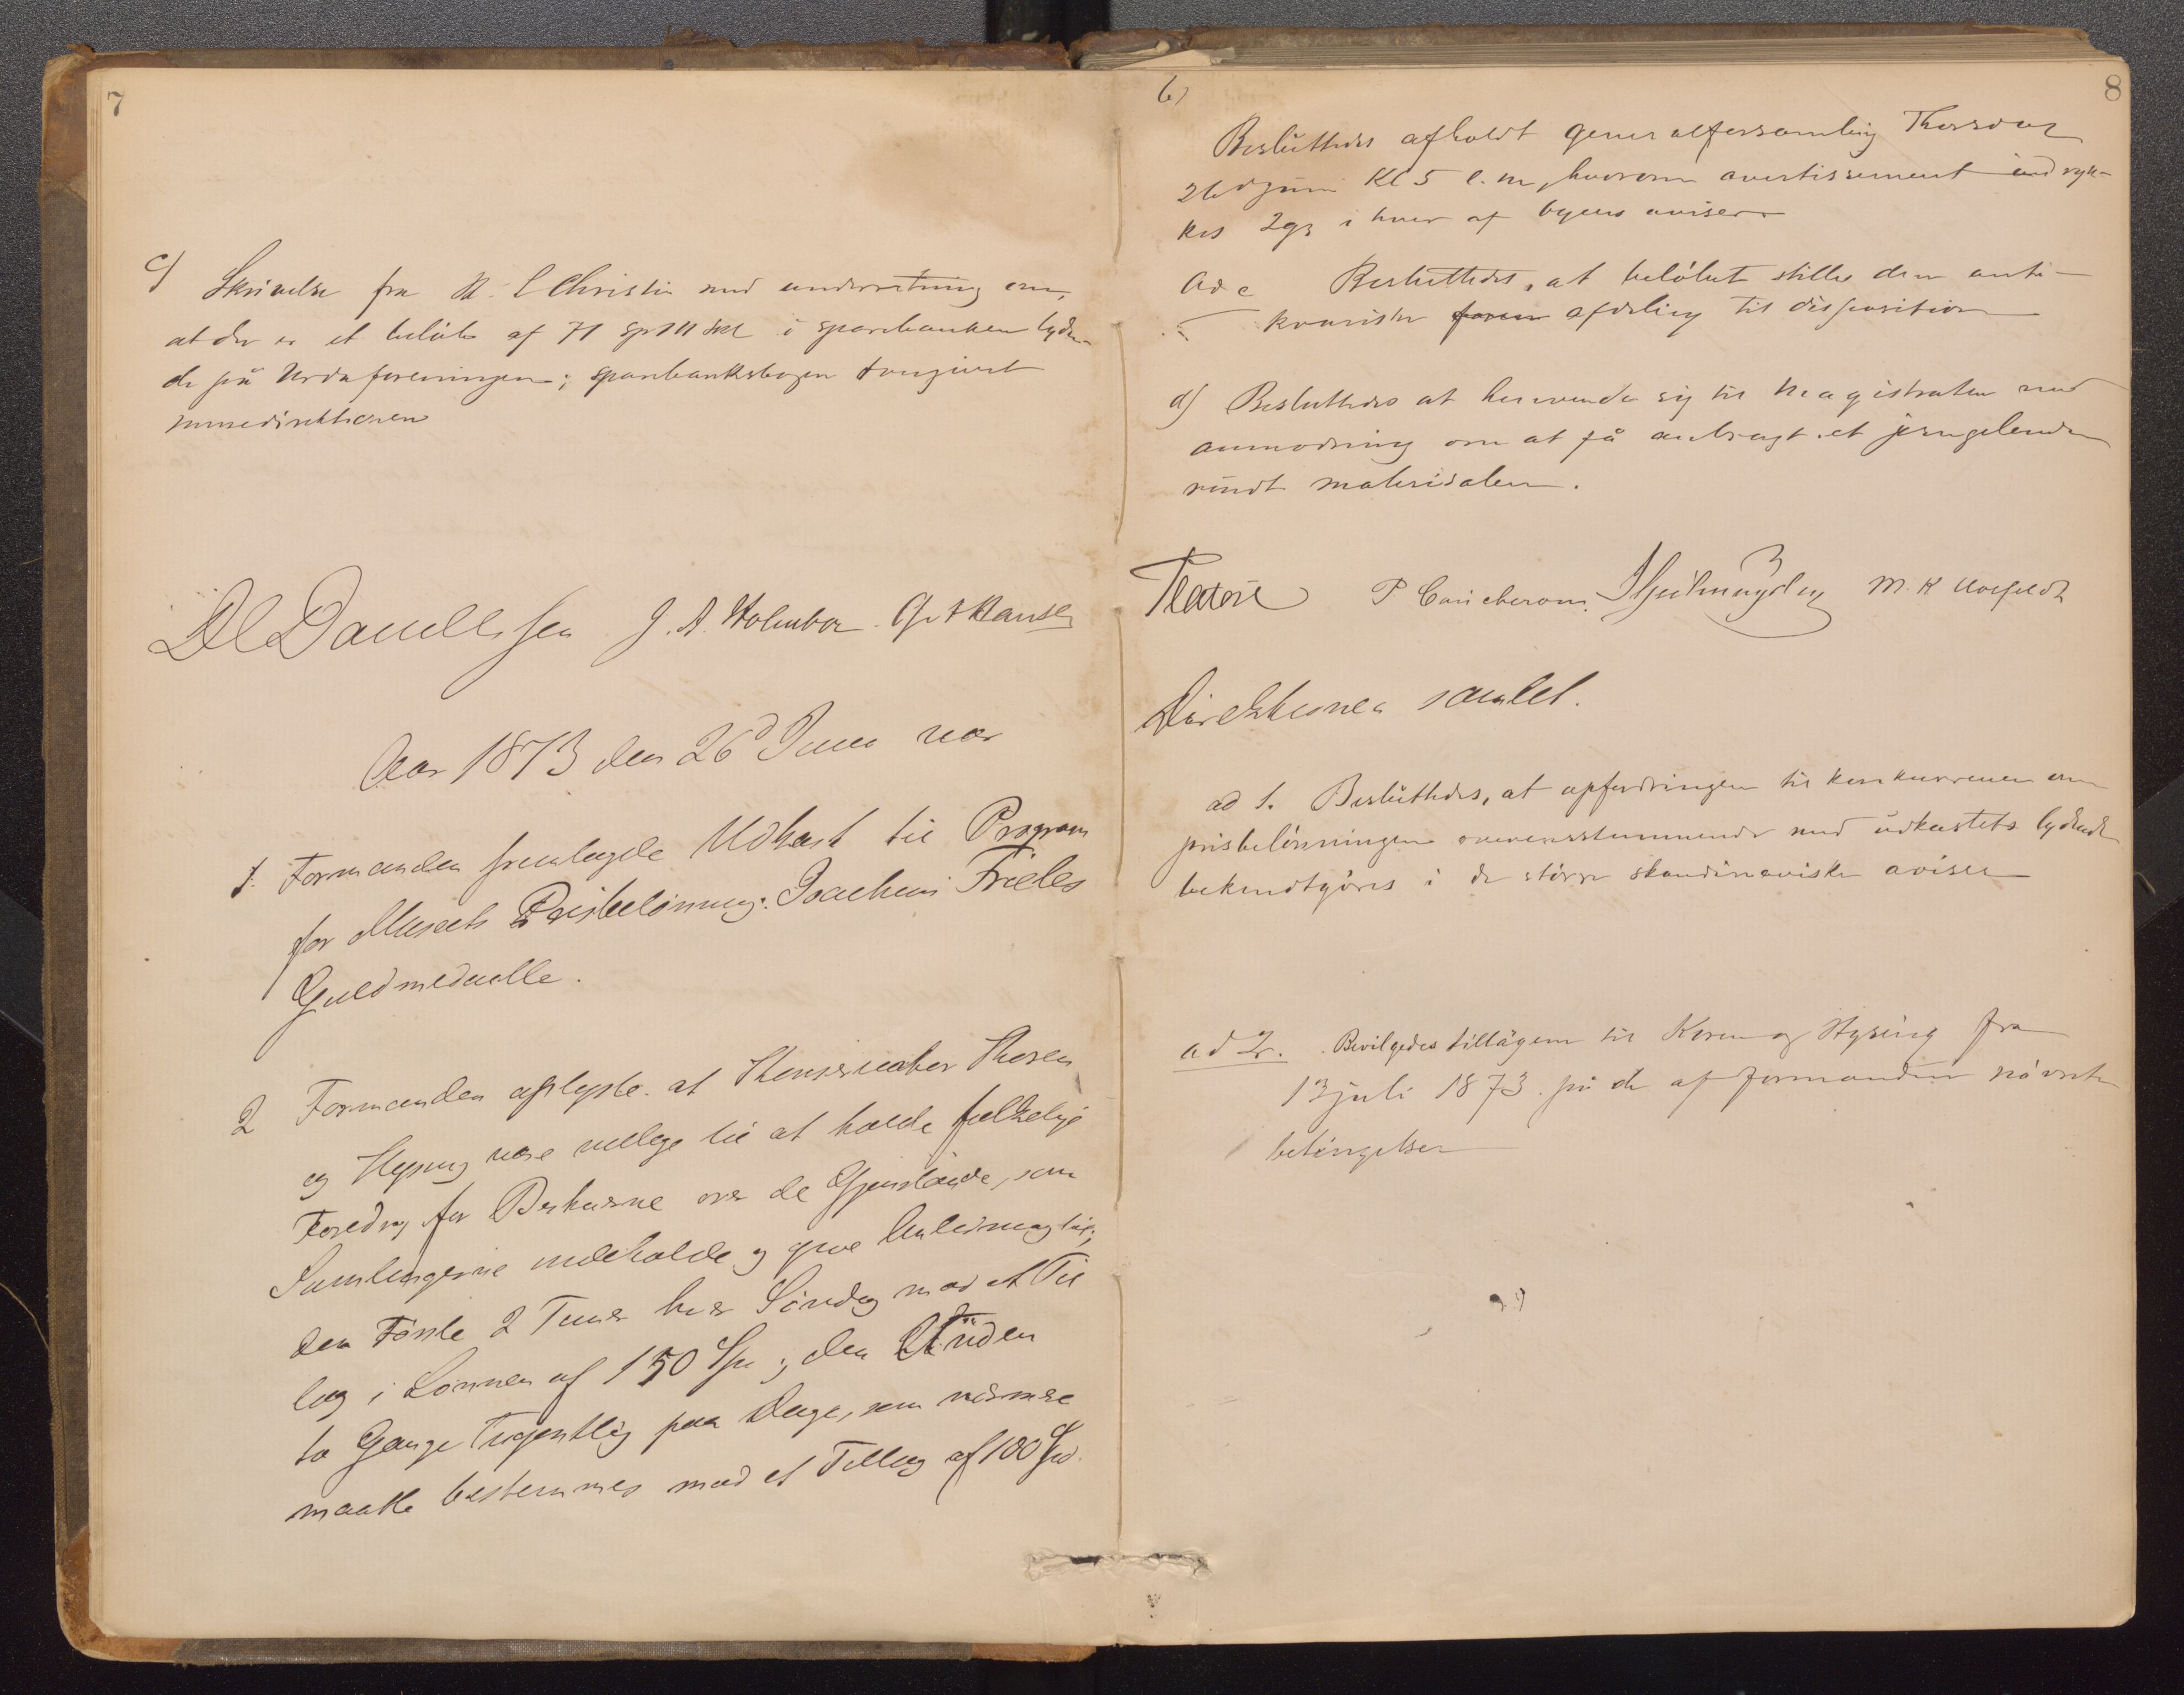 7
c) Skrivelse fra W. C Christie med underretning om,
at der er et beløb af 71 sp 111 skl i sparebanken lyden-
de på Urdaforeningen; sparebanksbogen
musedirektionen
DC Danielssen J. A. Holmboe. G. A Hansen
Aar 1873 den 26d Juni var
1. Formanden fremlagde Udkast til Program
for Museets Prisbelønning: Joachim Frieles
Guldmedaille.
2 Formanden oplyste at Konservator Koren
og Hysing vare villige til at holde folkelige
Foredrag for Besøkerne over de Gjenstande, som
Samlingerne indeholde og give Anledning til;
den Første 2 Timer hver Søndag mod et Til
læg i Lønnen af 150 Spd; den Anden
to Gange Ugentlig paa Dage, som nærmere
maatte bestemmes mod et Tillæg af 100 Spd.
b)
8
Besluttedes afholdt generalforsamling Thorsdag
26d juni Kl 5 e. m, hvorom avertissement indryk-
kes 2gg i hver af byens aviser
Ad c Besluttedes, at beløbet stilles den anti-
kvariske foren afdeling til disposition
d) Besluttedes at henvende sig til Magistraten med
anmodning om at få anbragt et jerngelender
rundt materialen.
M. K
Direktionen samlet.
ad 1. Besluttedes, at opfordringen til konkurrencen om
prisbelønningen overensstemmende med udkastets lydende
bekendtgøres i de større skandinaviske aviser
ad 2. Bevilgedes tillægene til Koren og Hysing fra
13 juli 1873 på de af formanden nævnte
betingelser